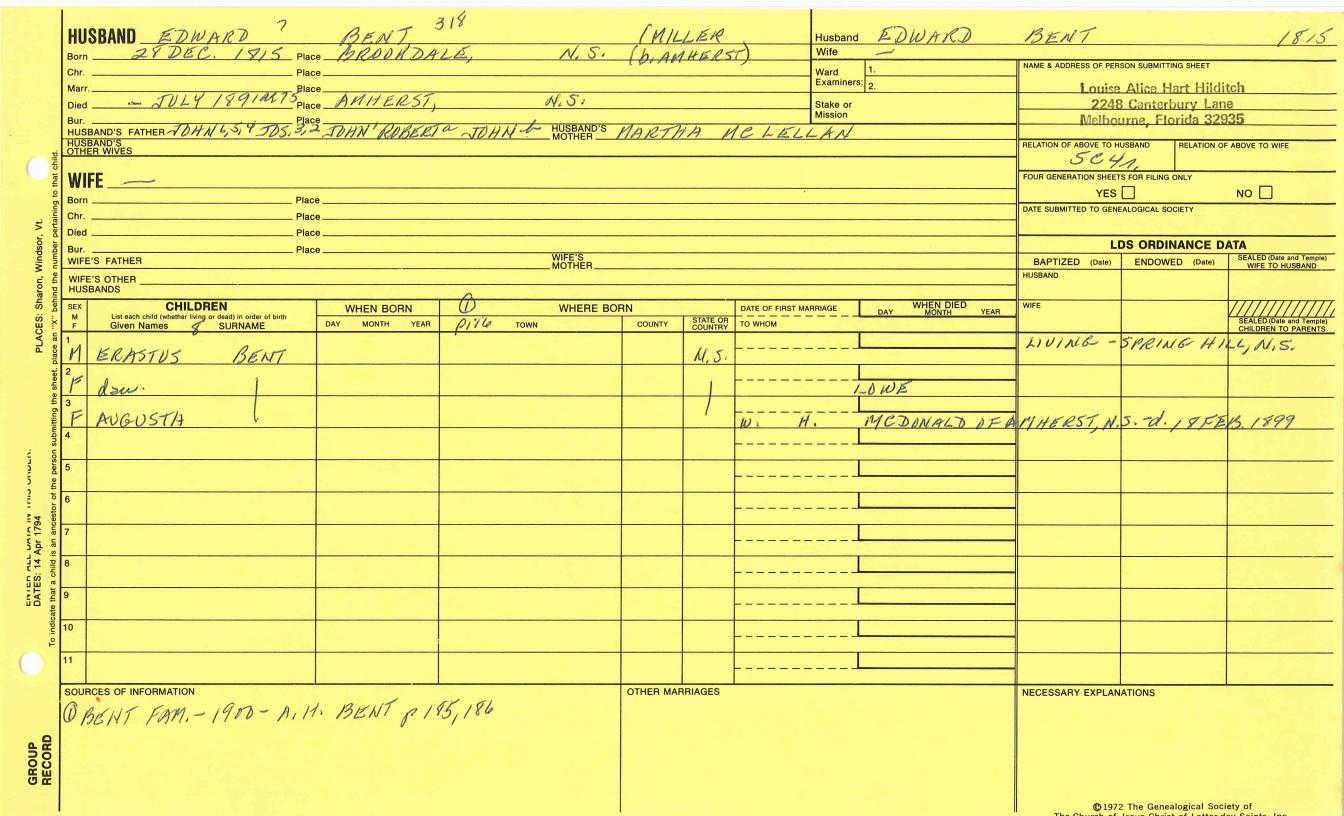 HUSBAND EDWARD 7 BENT 318 (MILLER
Born 28 DEC. 1815 Place BROOKDALE, N.S. (b. AMHERST)
Chr. Place
Marr. Place
Died – JULY 1891 Place AMHERST, N.S.
Bur. Place
HUSBAND'S FATHER JOHN 6,5,4 JOS. 3,2 JOHN 1 ROBERT a JOHN b HUSBAND'S MOTHER MARTHA MCLELLAN
HUSBAND'S OTHER WIVES
WIFE —
Born Place
Chr. Place
Died Place
Bur. Place
WIFE'S FATHER WIFE'S MOTHER
WIFE'S OTHER HUSBANDS
Husband EDWARD BENT 1815
Wife —
Ward Examiners: 1.
2.
Stake or Mission
NAME & ADDRESS OF PERSON SUBMITTING SHEET
Louise Alice Hart Hilditch
2248 Canterbury Lane
Melbourne, Florida 32935
RELATION OF ABOVE TO HUSBAND RELATION OF ABOVE TO WIFE
5C4r.
FOUR GENERATION SHEETS FOR FILING ONLY
YES NO
DATE SUBMITTED TO GENEALOGICAL SOCIETY
LDS ORDINANCE DATA
BAPTIZED (Date) ENDOWED (Date) SEALED (Date and Temple) WIFE TO HUSBAND
HUSBAND
WIFE
SEALED (Date and Temple) CHILDREN TO PARENTS
SEX M F
CHILDREN
List each child (whether living or dead) in order of birth
Given Names 8 SURNAME
WHEN BORN
DAY MONTH YEAR
① WHERE BORN
p186 TOWN COUNTY STATE OR COUNTRY
DATE OF FIRST MARRIAGE
TO WHOM
WHEN DIED
DAY MONTH YEAR
1 M ERASTUS BENT N.S. LIVING - SPRING HILL, N.S.
2 F dau. | | LOWE
3 F AUGUSTA W. H. MCDONALD OF AMHERST, N.S. - d. 18 FEB. 1899
4
5
6
7
8
9
10
11
SOURCES OF INFORMATION
① BENT FAM. - 1900 - A.H. BENT p 185,186
OTHER MARRIAGES
NECESSARY EXPLANATIONS
©1972 The Genealogical Society of
The Church of Jesus Christ of Latter-day Saints, Inc.
PLACES: Sharon, Windsor, Vt.
ENTER ALL DATA IN THIS ORDER:
DATES: 14 Apr 1794
To indicate that a child is an ancestor of the person submitting the sheet, place an "X" behind the number pertaining to that child.
GROUP RECORD